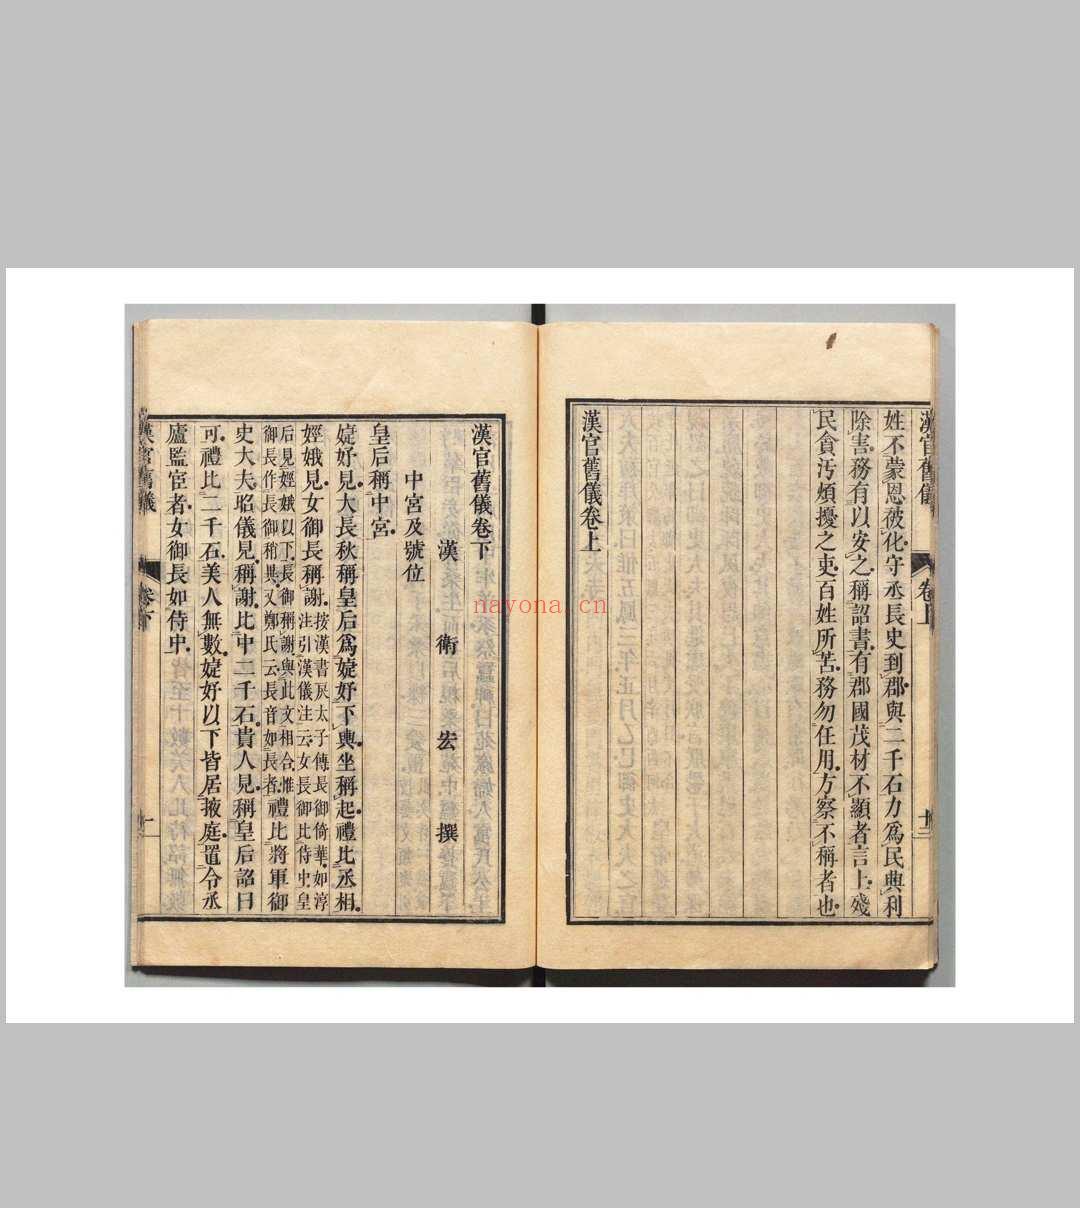 漢官舊儀
卷上
十二
姓不蒙恩被化守丞長史到郡與二千石力爲民興利
除害務有以安之稱詔書有郡國茂材不顯者言上殘
民貪汚煩擾之吏百姓所苦務勿任用方察不稱者也
漢官舊儀卷上
漢官舊儀卷下
漢 衛 宏 撰
中宮及號位
皇后稱中宮
婕妤見大長秋稱皇后爲婕妤下輿坐稱起禮比丞相
娙娥見女御長稱謝按漢書戾太子傳長御倚華如淳
注引漢儀注云女長御比侍中皇
后見娙娥以下長御稱謝與此文相合惟
御長作長御稍異又鄭氏云長音如長者禮比將軍御
史大夫昭儀見稱謝比中二千石貴人見稱皇后詔曰
可禮比二千石美人無數婕妤以下皆居掖庭置令丞
廬監宦者女御長如侍中
漢官舊儀
卷下
十一
nayona.cn